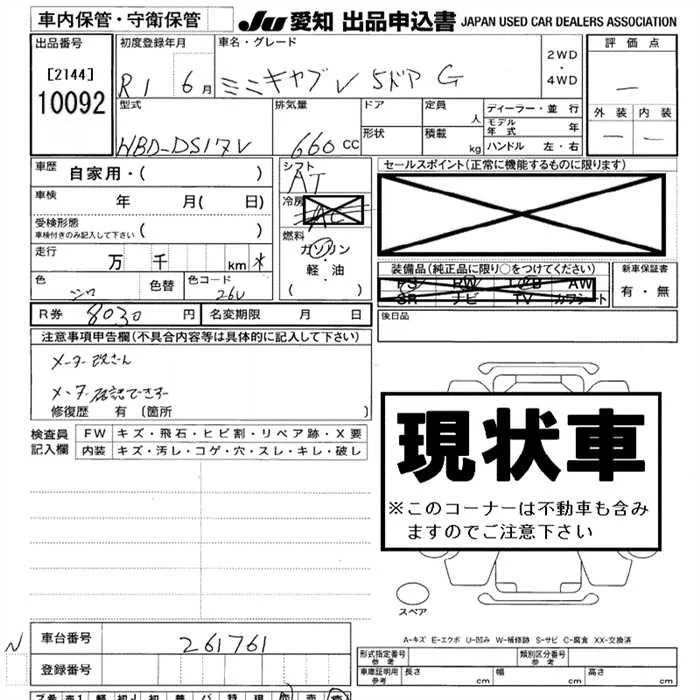 車内保管・守衛保管
JU 愛知 出品申込書 JAPAN USED CAR DEALERS ASSOCIATION
出品番号 初度登録年月 車名・グレード 2WD・4WD 評価点
[2144]
10092
R1 6月 ミニキャブV 5ドア G
—
型式 排気量 ドア 定員 人 ディーラー・並行 外装 内装
モデル年式 年
HBD-DS17V 660 CC 形状 積載 kg ハンドル 左・右 — —
車歴 自家用・( ) シフト AT セールスポイント(正常に機能するものに限ります)
車検 年 月( 日) 冷房 AC
受検形態
車検付きのみ記入して下さい ( ) 燃料 ガソリン・軽・油 ( )
走行 万 千 km *
装備品(純正品に限り○をつけてください) 新車保証書
色 シロ 色替 色コード 26U
PS PW AW
SR ナビ TV カワシート 有・無
R券 8030円 名変期限 月 日 後日品
注意事項申告欄(不具合内容等は具体的に記入して下さい)
修復歴 有 [箇所 ]
現状車
※このコーナーは不動車も含みますのでご注意下さい
検査員記入欄 FW キズ・飛石・ヒビ割・リペア跡・X要
内装 キズ・汚レ・コゲ・穴・スレ・キレ・破レ
スペア
A-キズ E-エクボ U-凹み W-補修跡 S-サビ C-腐食 XX-交換済
N 車台番号 261761
登録番号
形式指定番号 参考 類別区分番号 参考
車庫証明用 参考 長さ cm 幅 cm 高さ cm